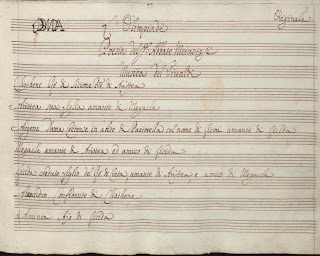 Originale
L'Olimpiade
Poesia del Sr. Abbate Metastasio
Musica del Vivaldi
Clistene Re di Sicione Pre di Aristea
Aristea sua figlia amante di Megacle
Argene Dama Cretense in abito di Pastorella col nome di Licori amante di Licida
Megacle amante di Aristea ed amico di Licida
Licida creduto figlio del Re di Creta amante di Aristea e amico di Megacle
Alcandro Confidente di Clistene
Aminta Ajo di Licida